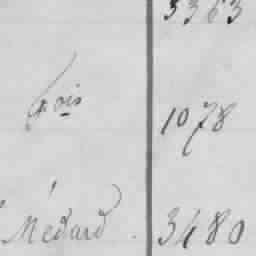 3363
fçois 1078
Médard. 3480